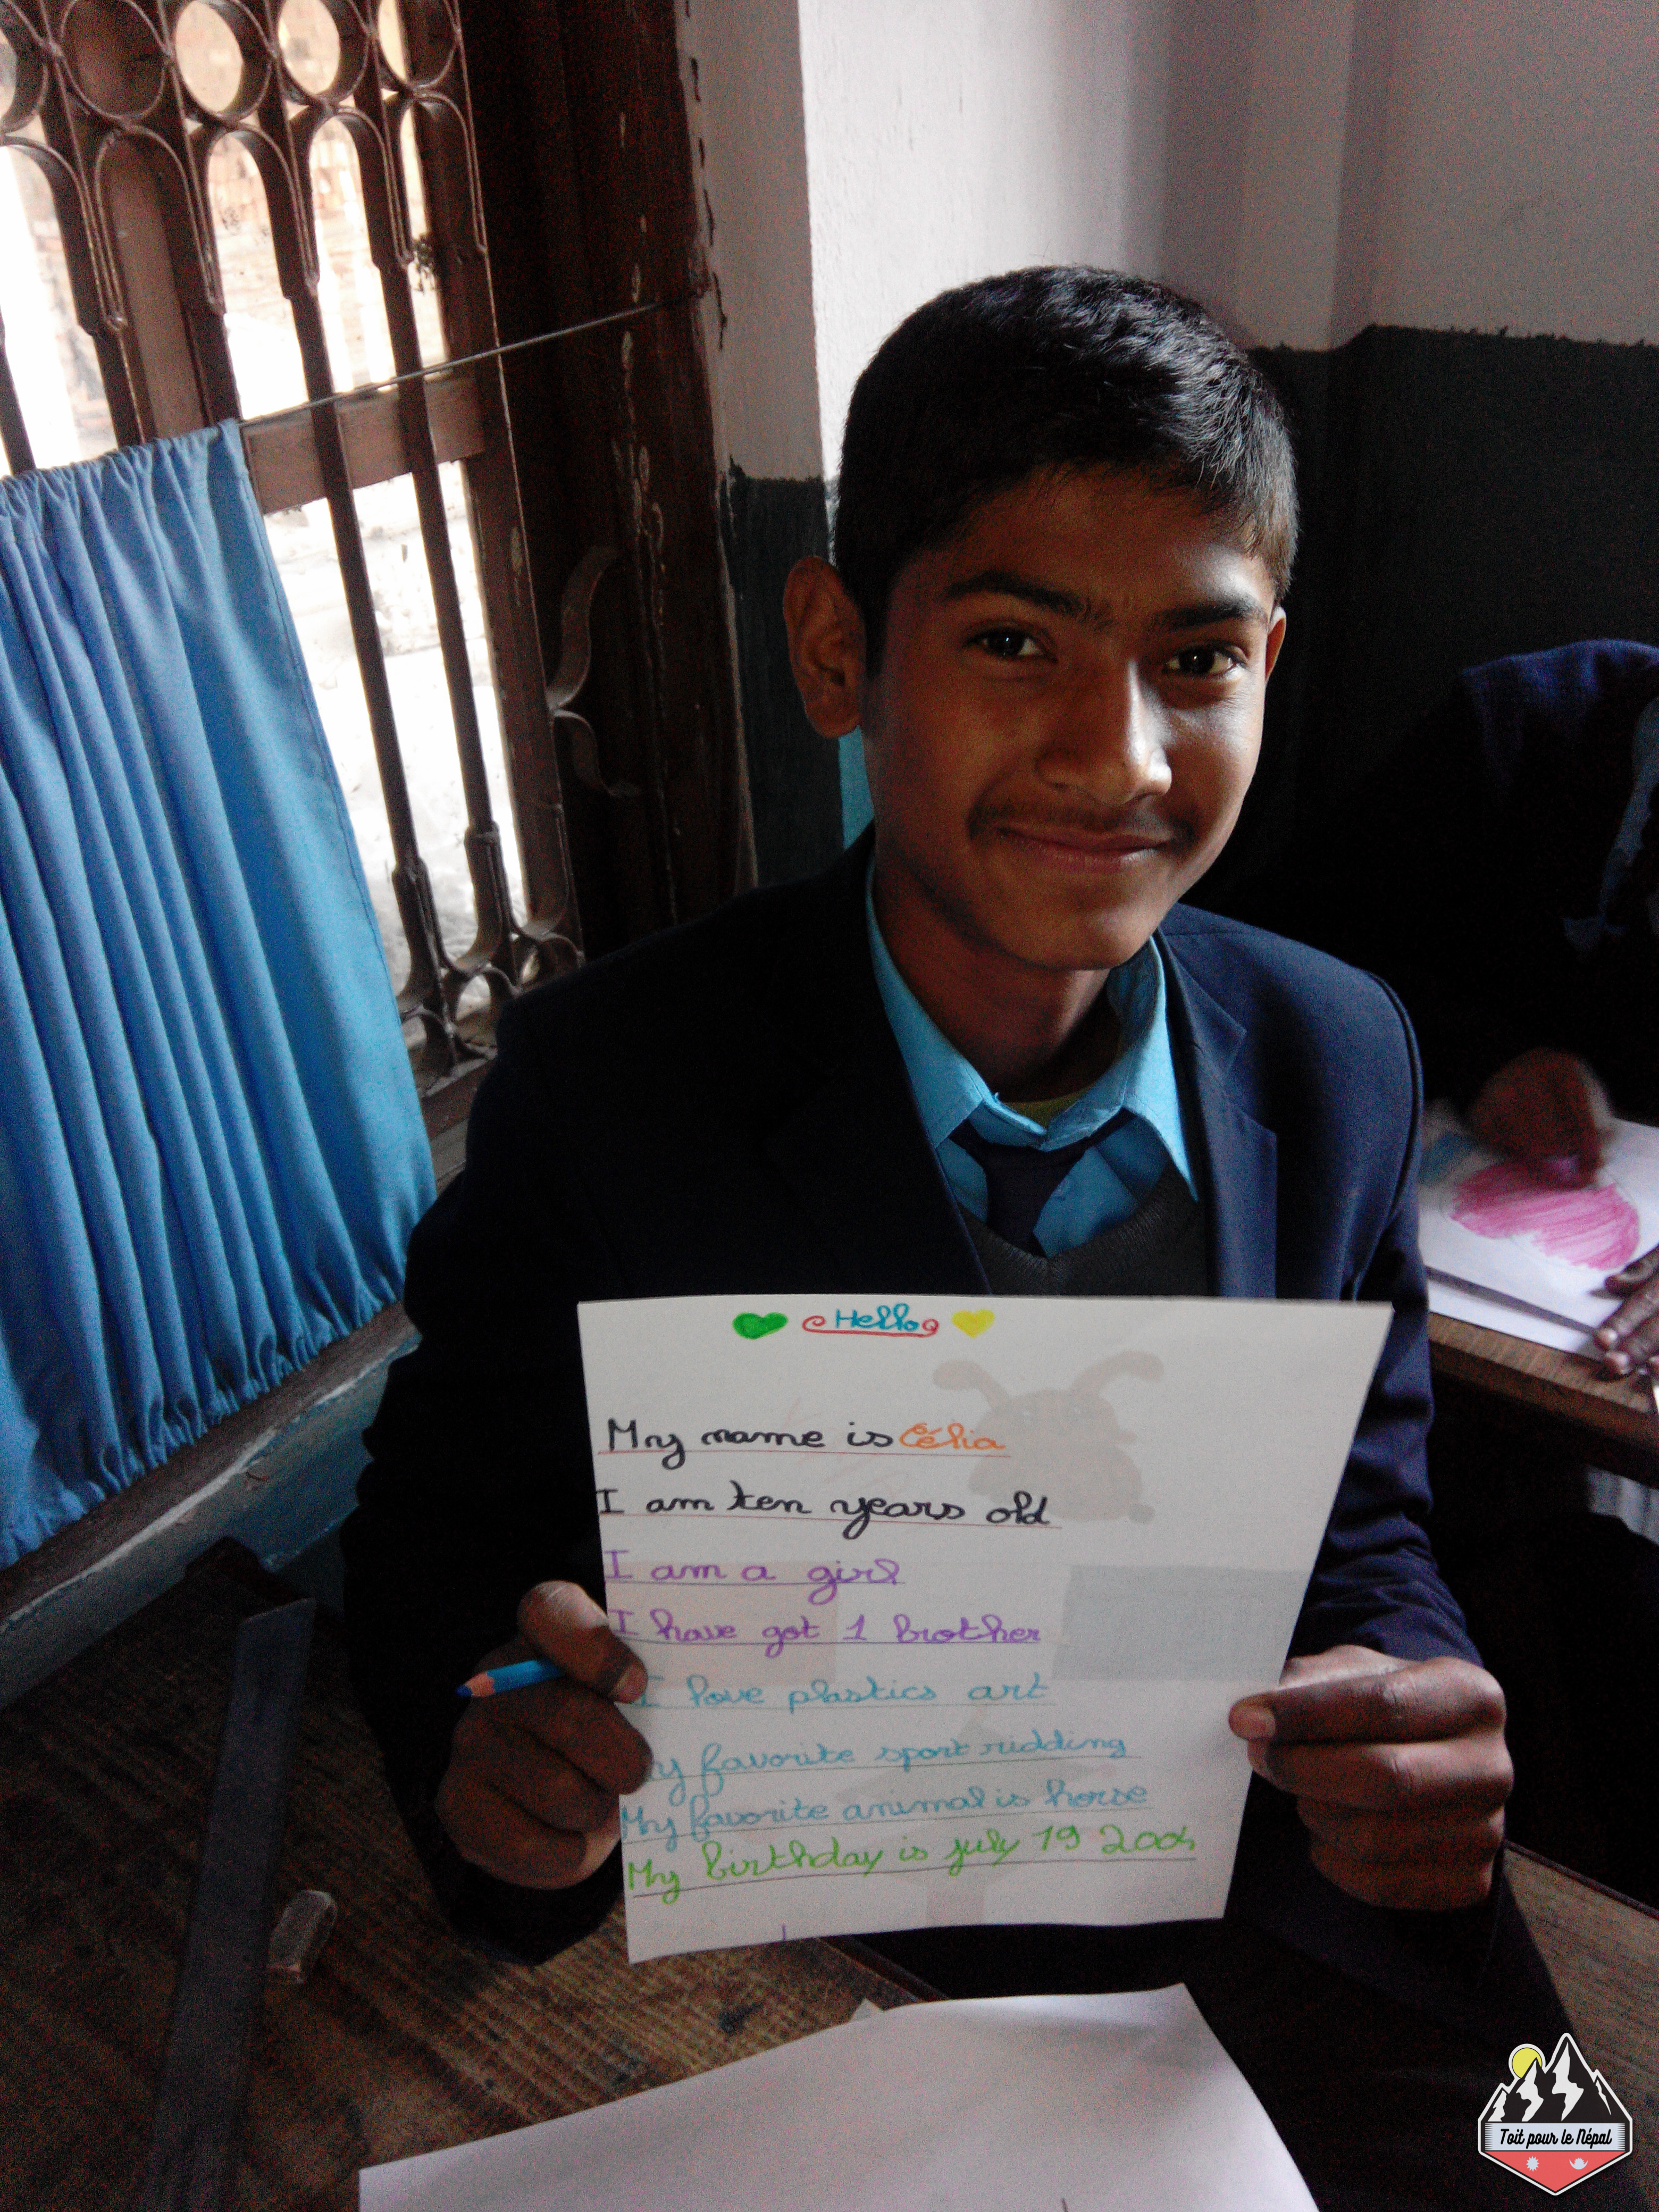 Hello
My name is Célia
I am ten years old
I am a girl
I have got 1 brother
I love plastics art
y favorite sport ridding
My favorite animal is horse
My birthday is july 19
Toit pour le Népal